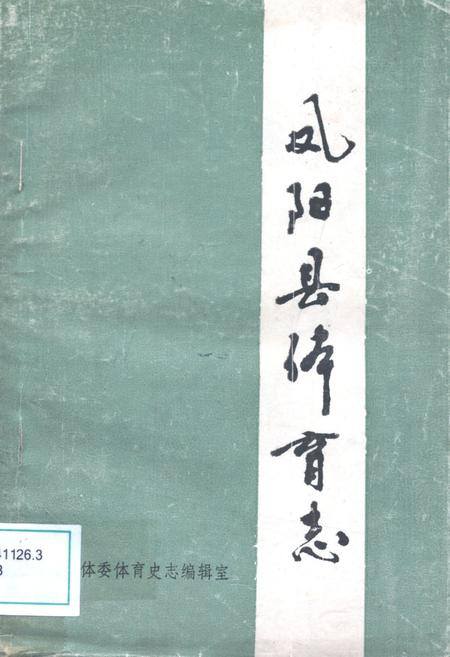 凤阳县体育志
41126.3
3
体委体育史志编辑室